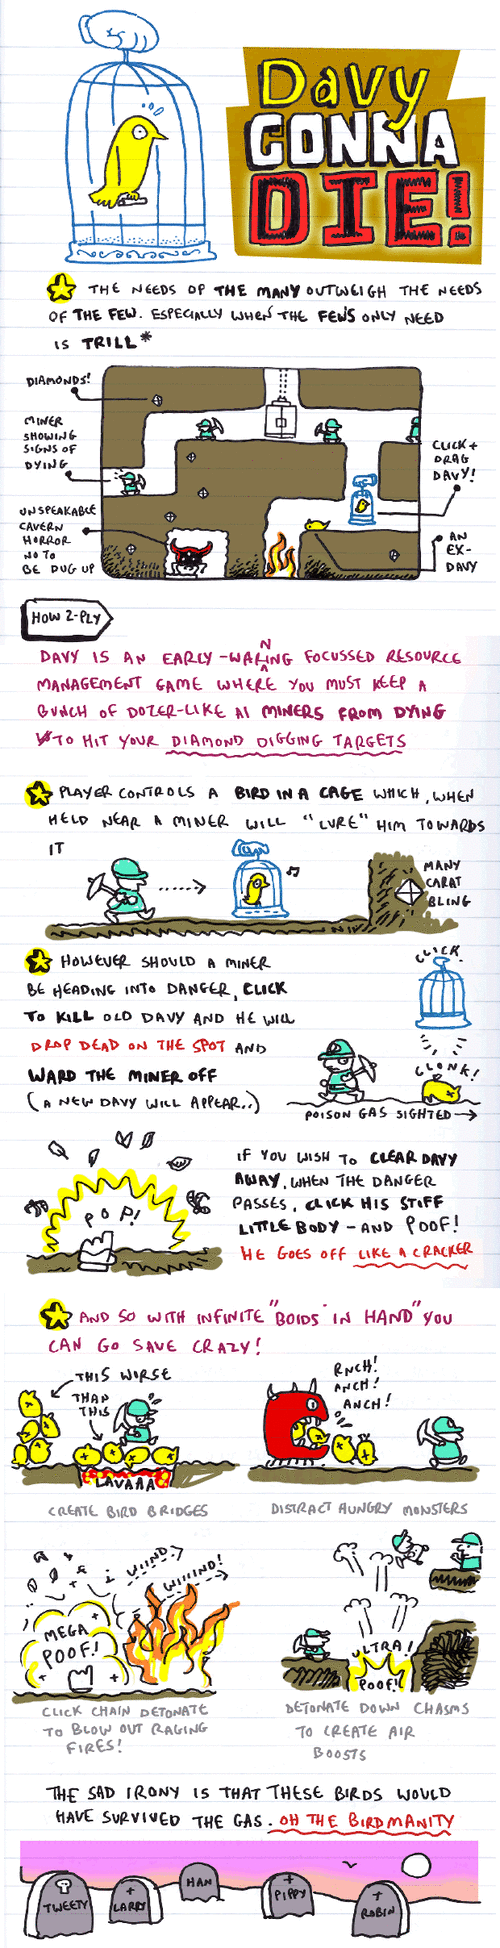 Davy
GONNA
DIE!
THE NEEDS OF THE MANY OUTWEIGH THE NEEDS
OF THE FEW. ESPECIALLY WHEN THE FEWS ONLY NEED
IS TRILL*
DIAMONDS!
MINER
SHOWING
SIGNS OF
DYING
UNSPEAKABLE
CAVERN
HORROR
NO TO
BE DUG UP
CLICK +
DRAG
DAVY!
AN
EX-
DAVY
HOW 2-PLY
DAVY IS AN EARLY-WARNING FOCUSSED RESOURCE
MANAGEMENT GAME WHERE YOU MUST KEEP A
BUNCH OF DOZER-LIKE AI MINERS FROM DYING
TO HIT YOUR DIAMOND DIGGING TARGETS
PLAYER CONTROLS A BIRD IN A CAGE WHICH, WHEN
HELD NEAR A MINER WILL "LURE" HIM TOWARDS
IT
MANY
CARAT
BLING
HOWEVER SHOULD A MINER
BE HEADING INTO DANGER, CLICK
TO KILL OLD DAVY AND HE WILL
DROP DEAD ON THE SPOT AND
WARD THE MINER OFF
(A NEW DAVY WILL APPEAR..)
CLICK.
CLONK!
POISON GAS SIGHTED
POP!
IF YOU WISH TO CLEAR DAVY
AWAY, WHEN THE DANGER
PASSES, CLICK HIS STIFF
LITTLE BODY - AND POOF!
HE GOES OFF LIKE A CRACKER
AND SO WITH INFINITE "BOIDS IN HAND" YOU
CAN GO SAVE CRAZY!
THIS WIRSE
THAN
THIS
LAVAAA
CREATE BIRD BRIDGES
RNCH!
ANCH!
ANCH!
DISTRACT HUNGRY MONSTERS
WIIND
WIIIIND!
MEGA
POOF!
CLICK CHAIN DETONATE
TO BLOW OUT RAGING
FIRES!
ULTRA!
POOF!
DETONATE DOWN CHASMS
TO CREATE AIR
BOOSTS
THE SAD IRONY IS THAT THESE BIRDS WOULD
HAVE SURVIVED THE GAS. OH THE BIRDMANITY
TWEETY
LARRY
HAN
PIPPY
ROBIN